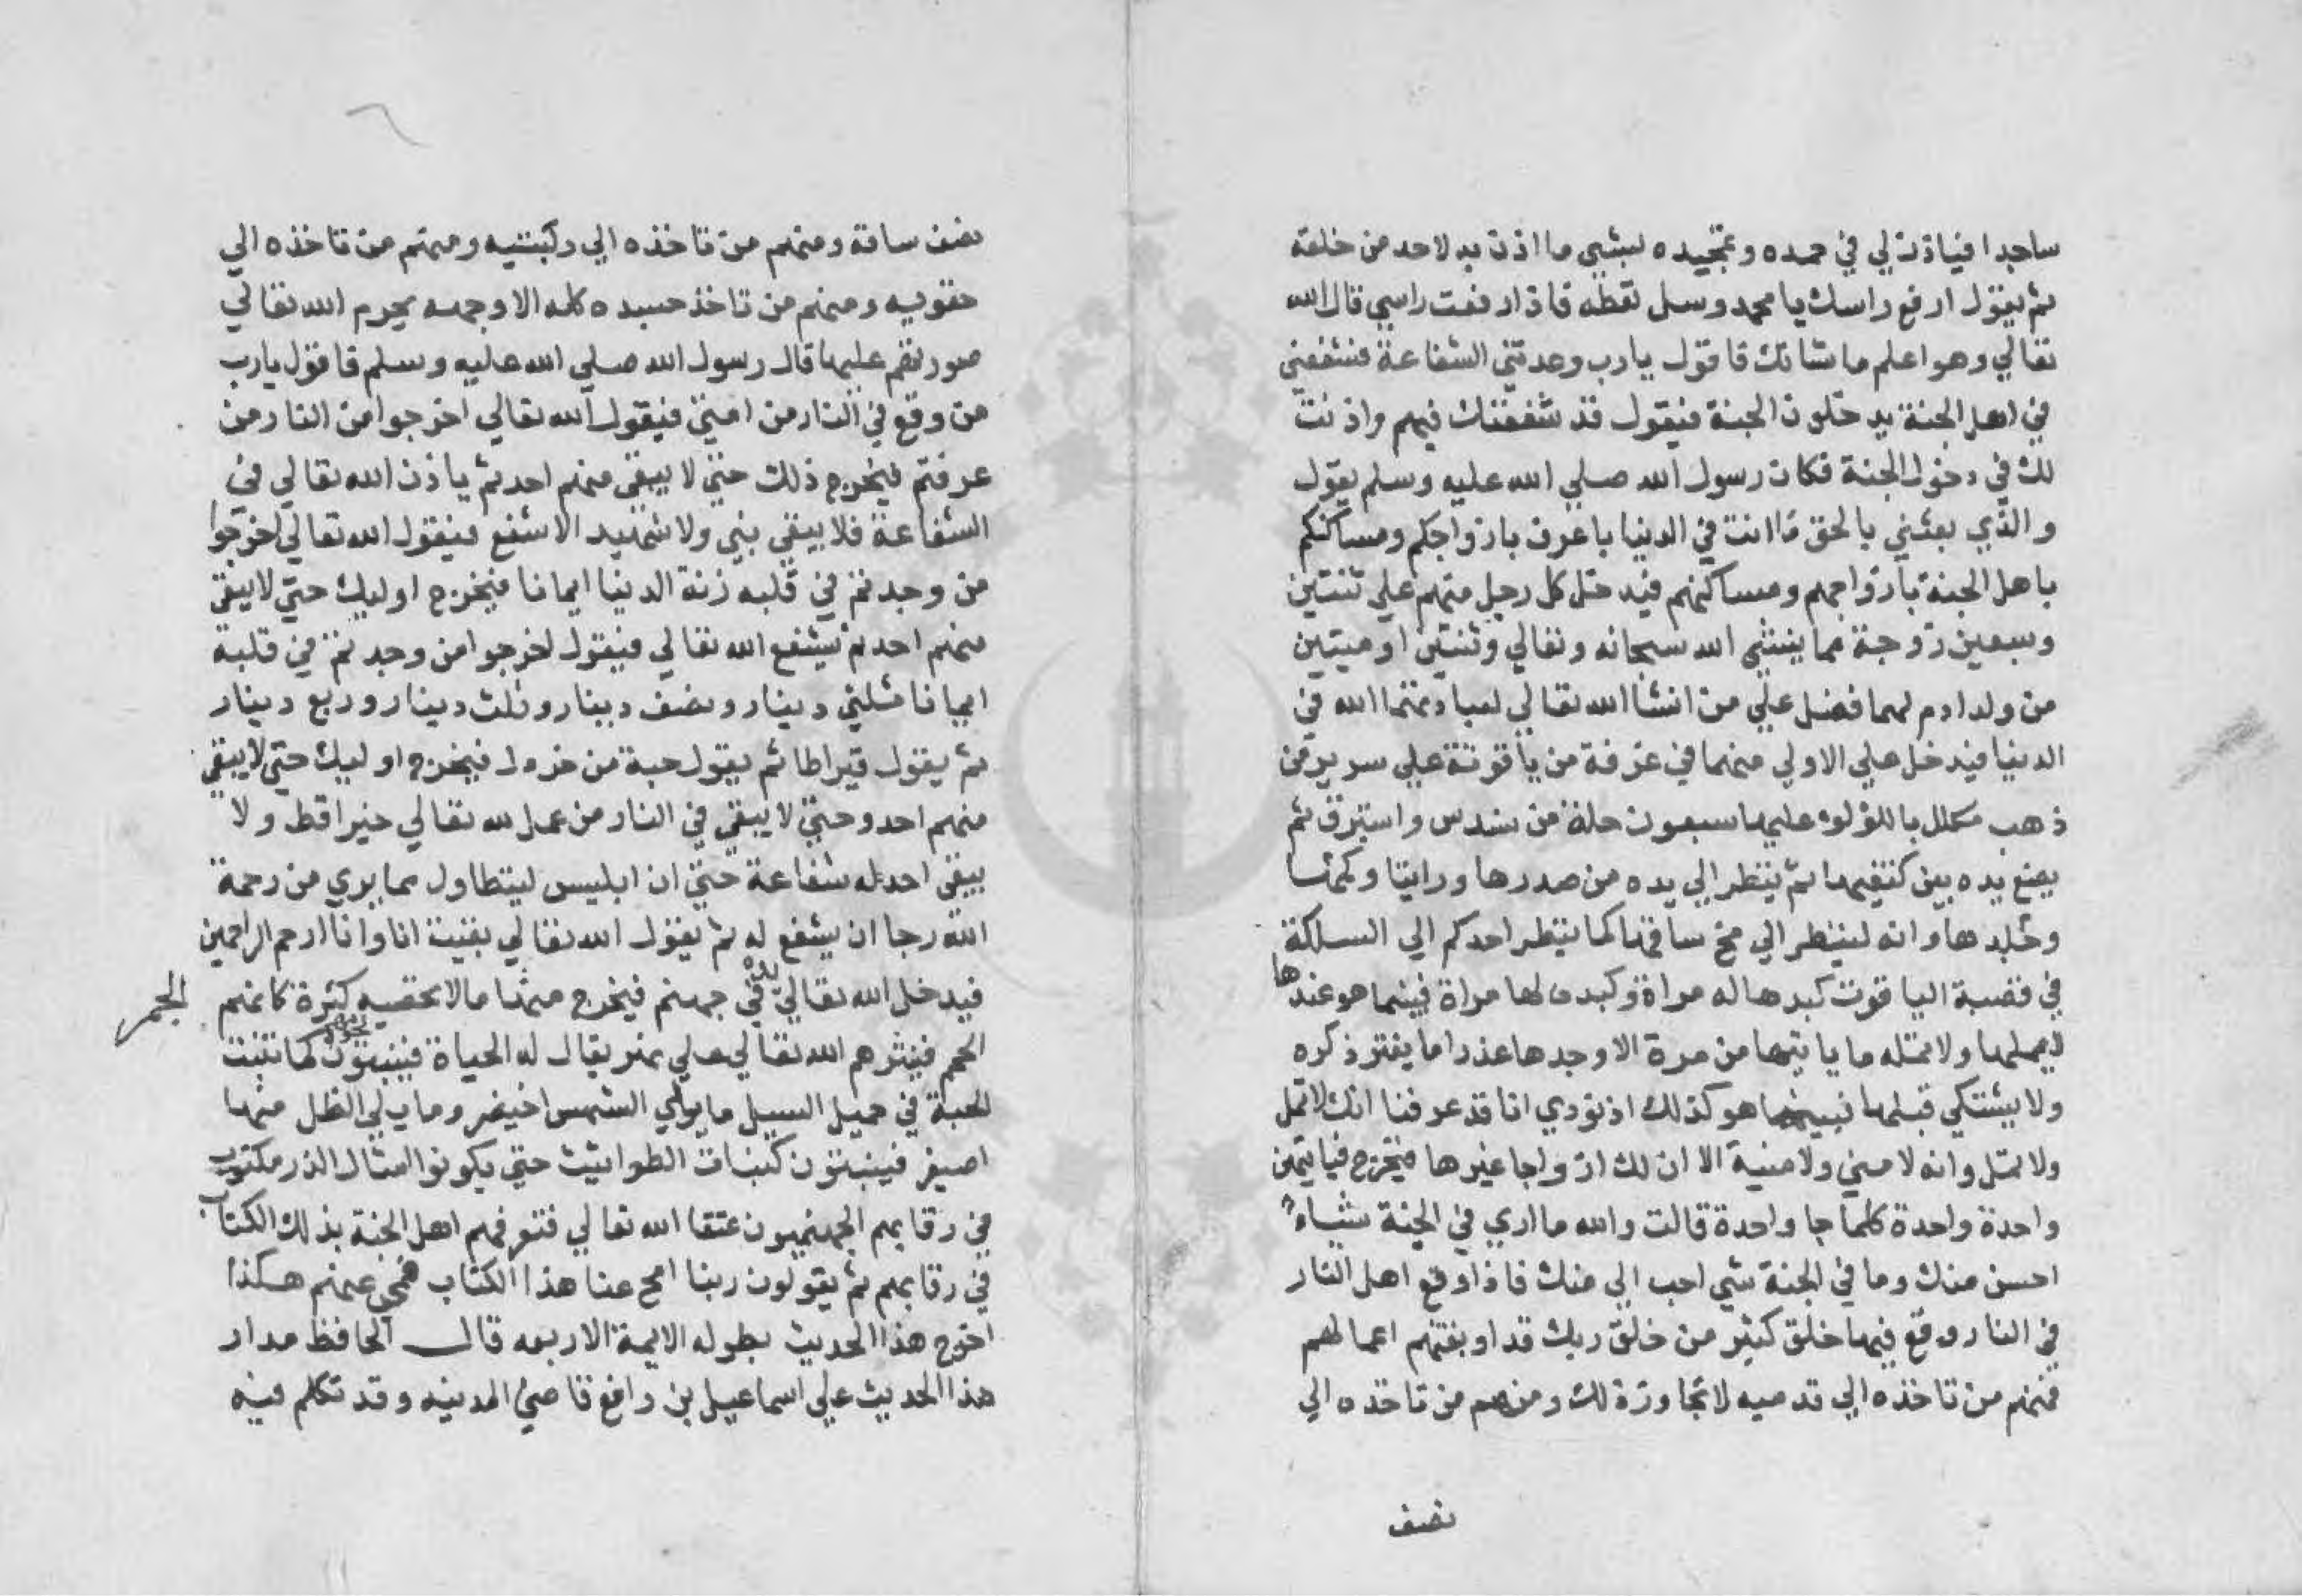 ساجدا فياذن لي في حمده وتمجيده لبشي ما اذن به لاحد من خلقه
ثم يقول ارفع راسك يا محمد وسل تعطه فاذا رفعت راسي قال الله
تعالي وهو اعلم ما شانك فاقول يارب وعدتني الشفاعة فشفعني
في اهل الجنة يدخلون الجنة فيقول قد شفعتك فيهم واذنت
لك في دخول الجنة فكان رسول الله صلي الله عليه وسلم يقول
والذي بعثني بالحق ما انت في الدنيا باعرف بازواجكم ومساكنكم
باهل الجنة بازواجهم ومساكنهم فيدخل كل رجل منهم علي ثنتين
وسبعين زوجة مما ينشي الله سبحانه وتعالي وثنتين اوميتين
من ولد ادم لهما فضل علي من انشا الله تعالي لعبادتهما الله في
الدنيا فيدخل علي الاولي منهما في غرفة من ياقوتة علي سرير من
ذهب مكلل باللؤلوء عليها سبعون حلة من سندس واستبرق ثم
يضع يده بين كتفيها ثم ينظر الي يده من صدرها ورايتا ولحمها
وجلدها وانه لينظر الي مخ ساقها كما ينظر احدكم الي السلكة
في قصبة الياقوت كبدها له مراة وكبده لها مراة فبينما هو عندها
لايملها ولا تمله ما ياتيها من مرة الا وجدها عذرا ما يفتر ذكره
ولا يشتكي قبلها فبينما هو كذلك اذ نودي انا قد عرفنا انك لا تمل
ولا تمل وانه لا مني ولا منية الا ان لك ازواجا غيرها فيخرج فياتيهن
واحدة واحدة كلما جا واحدة قالت والله ما اري في الجنة شياء
احسن منك وما في الجنة شي احب الي منك فاذا وقع اهل النار
في النار وقع فيها خلق كثير من خلق ربك قد اوبقتهم اعمالهم
فمنهم من تاخذه الي قدميه لا تجاوزة لك ومنهم من تاخذه الي
نصف
نصف ساقة ومنهم من تاخذه الي ركبتيه ومنهم من تاخذه الي
حقويه ومنهم من تاخذ جسده كله الا وجهه يحرم الله تعالي
صورتهم عليها قال رسول الله صلي الله عليه وسلم فاقول يارب
من وقع في النار من امتي فيقول الله تعالي اخرجوا من النار من
عرفتم فيخرج ذلك حتي لا يبقي منهم احد ثم ياذن الله تعالي في
الشفاعة فلا يبقي بني ولا شهيد الا شفع فيقول الله تعالي اخرجوا
من وجدتم في قلبه زنة الدنيا ايمانا فيخرج اوليك حتي لا يبقي
منهم احد ثم يشفع الله تعالي فيقول اخرجوا من وجدتم في قلبه
ايمانا ثلثي دينار ونصف دينار وثلث دينار وربع دينار
ثم يقول قيراطا ثم يقول حبة من خردل فيخرج اوليك حتي لا يبقي
منهم احد وحتي لا يبقي في النار من عمل لله تعالي خيرا قط ولا
يبقي احد له شفاعة حتي ان ابليس ليتطاول مما يري من رحمة
الله رجا ان يشفع له ثم يقول الله تعالي بقيت انا وانا ارحم الراحمين
فيدخل الله تعالي يده في جهنم فيخرج منها مالا يحصيه كثرة كانهم الجمر
الحمم فينثرهم الله تعالي علي نهر يقال له الحياة فينبتون كما تنبت
الحبة في حميل السيل ما يولي الشمس اخيضر وما يلي الظل منها
اصيفر فينبتون كنبات الطواثيث حتي يكونوا امثال الذر مكتوب
في رقابهم الجهنميون عتقا الله تعالي فتعرفهم اهل الجنة بذلك الكتاب
في رقابهم ثم يقولون ربنا امح عنا هذا الكتاب فمحي عنهم هكذا
اخرج هذا الحديث بطوله الايمة الاربعه قال الحافظ مدار
هذا الحديث علي اسماعيل بن رافع قاضي المدينه وقد تكلم فيه